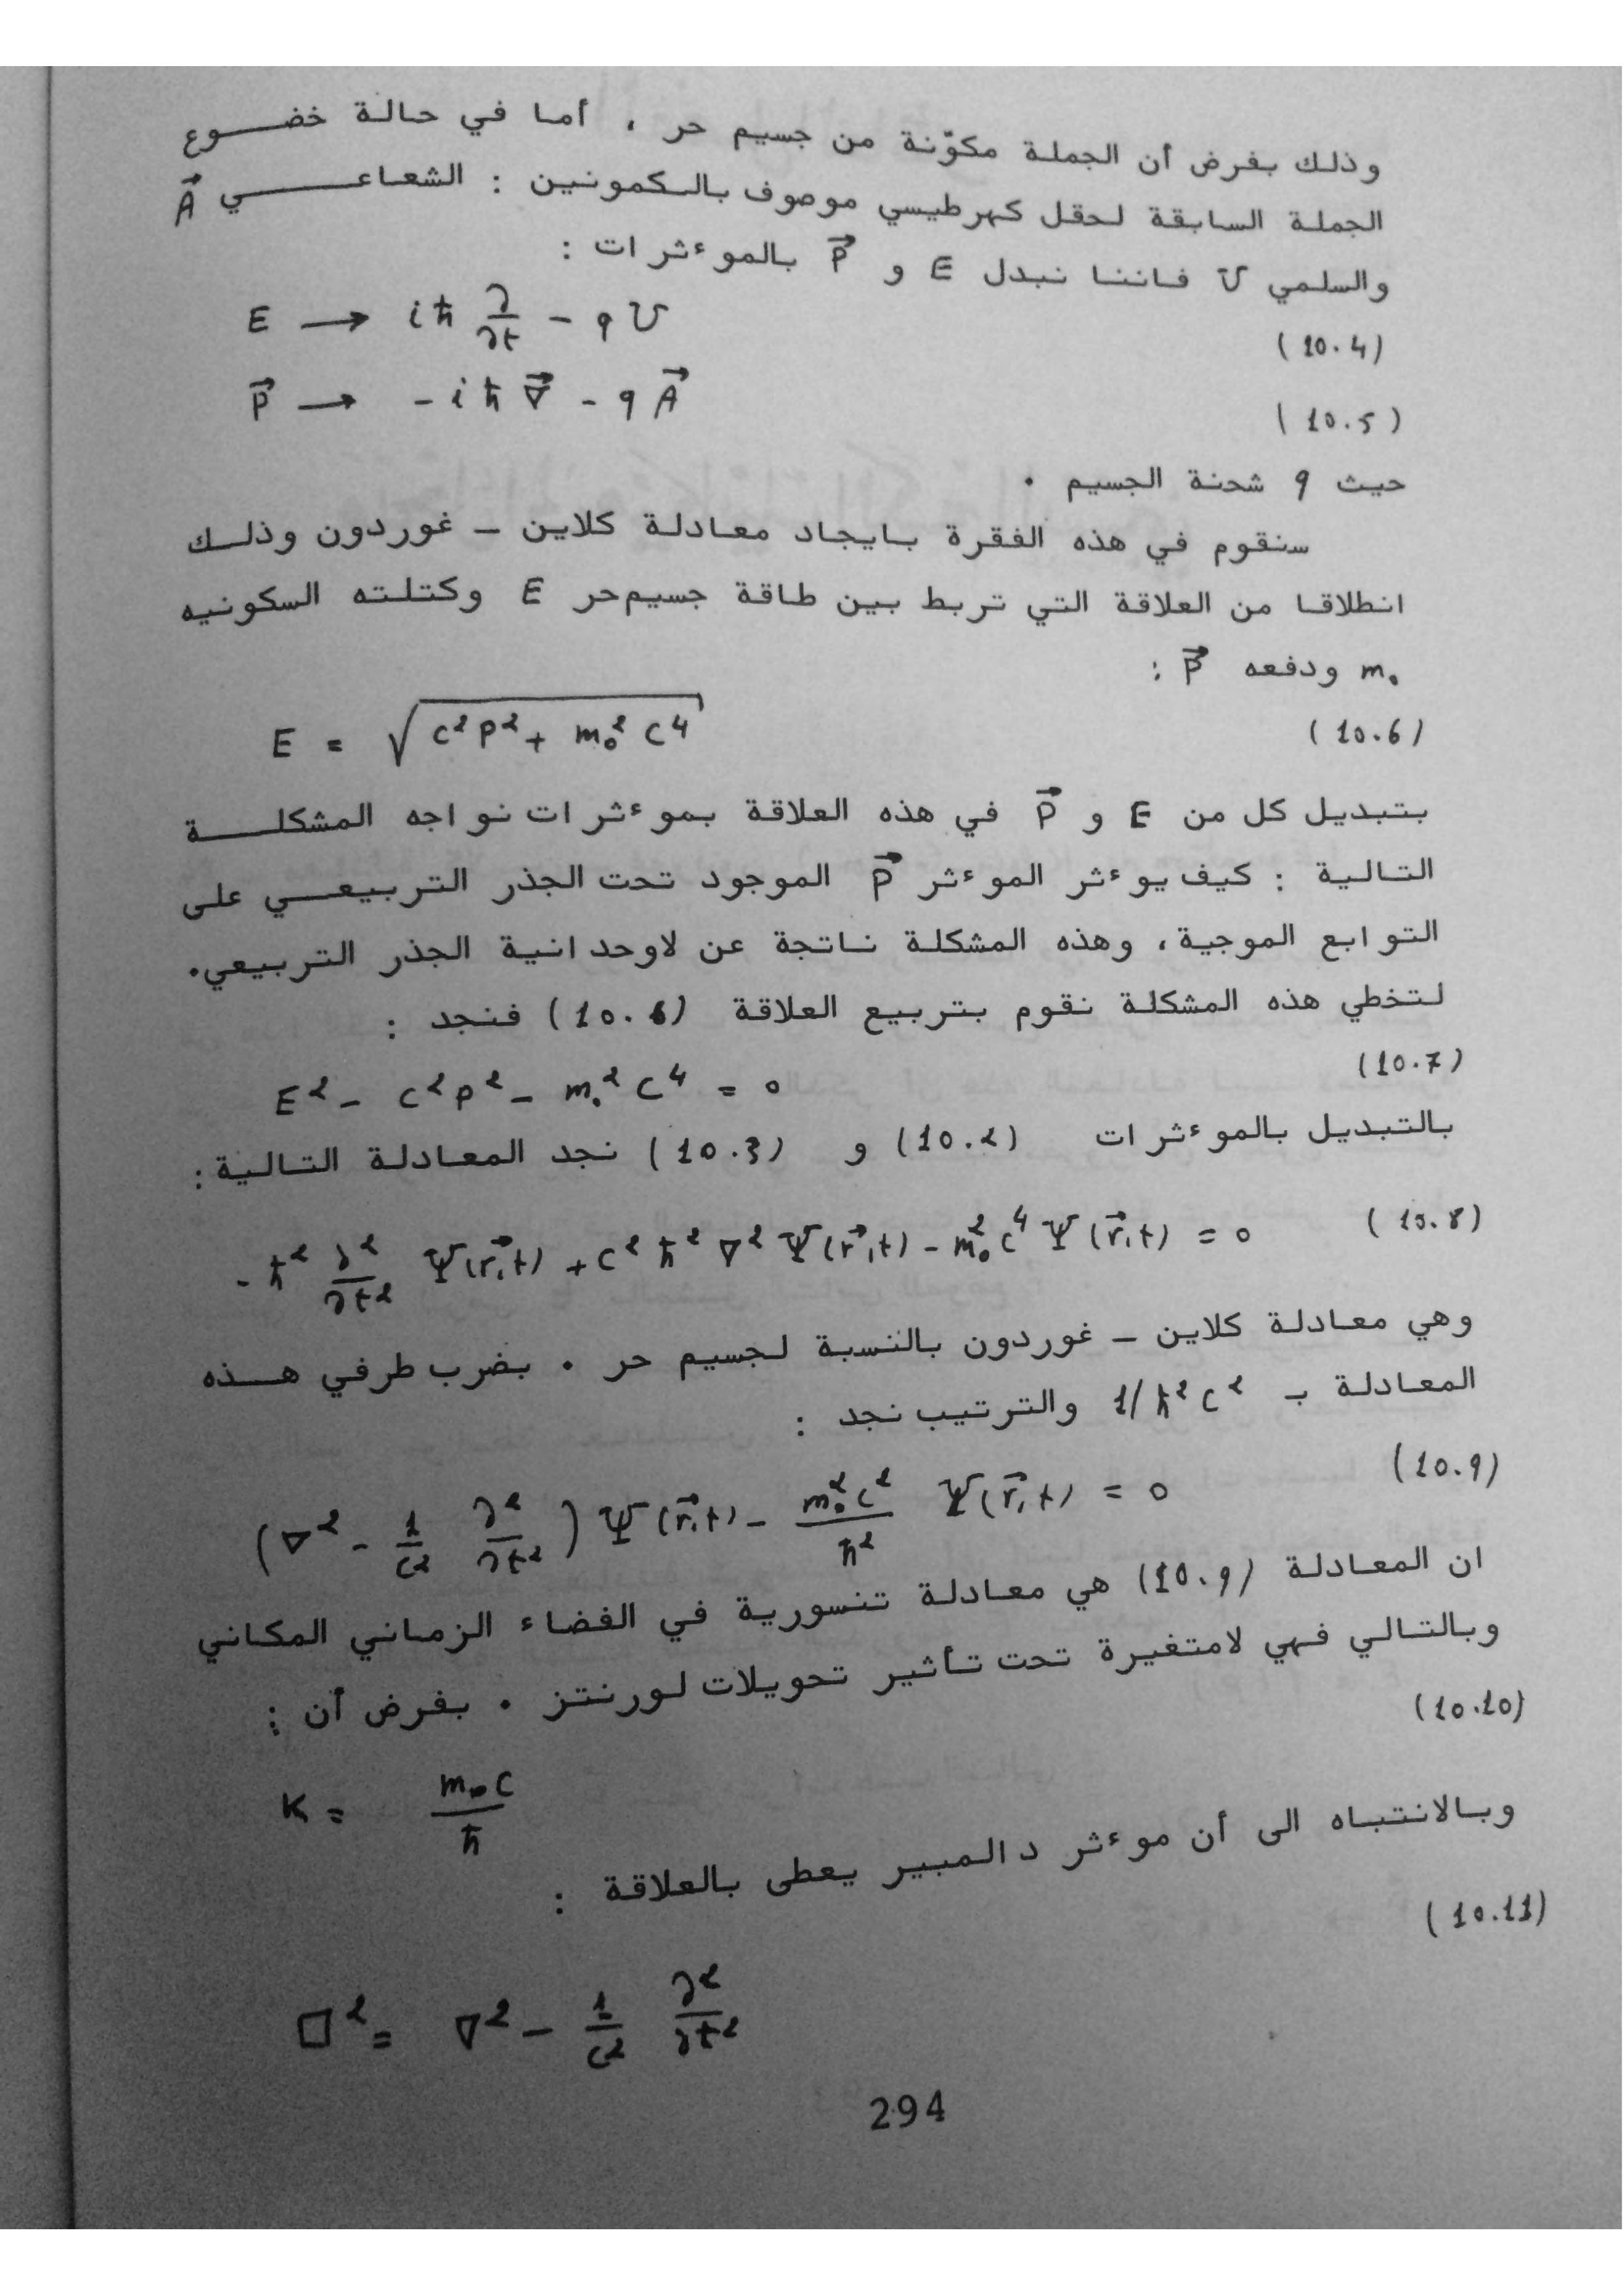 وذلك بفرض أن الجملة مكوّنة من جسيم حر ، أما في حالة خضوع
الجملة السابقة لحقل كهرطيسي موصوف بالكمونين : الشعاعي A⃗
والسلمي U فاننا نبدل E و P⃗ بالموءثرات :
E → iħ ∂/∂t - qU (10.4)
P⃗ → -iħ∇⃗ - qA⃗ (10.5)
حيث q شحنة الجسيم .
سنقوم في هذه الفقرة بايجاد معادلة كلاين - غوردون وذلك
انطلاقا من العلاقة التي تربط بين طاقة جسيم حر E وكتلته السكونيه
m₀ ودفعه P⃗ :
E = √(c²P² + m₀²c⁴) (10.6)
بتبديل كل من E و P⃗ في هذه العلاقة بموءثرات نواجه المشكلة
التالية : كيف يوءثر الموءثر P⃗ الموجود تحت الجذر التربيعي على
التوابع الموجية، وهذه المشكلة ناتجة عن لاوحدانية الجذر التربيعي.
لتخطي هذه المشكلة نقوم بتربيع العلاقة (10.6) فنجد :
E² - c²P² - m₀²c⁴ = 0 (10.7)
بالتبديل بالموءثرات (10.2) و (10.3) نجد المعادلة التالية :
-ħ² ∂²/∂t² Ψ(r⃗,t) + c²ħ²∇²Ψ(r⃗,t) - m₀²c⁴Ψ(r⃗,t) = 0 (10.8)
وهي معادلة كلاين - غوردون بالنسبة لجسيم حر . بضرب طرفي هذه
المعادلة بـ 1/ħ²c² والترتيب نجد :
(∇² - 1/c² ∂²/∂t²) Ψ(r⃗,t) - m₀²c²/ħ² Ψ(r⃗,t) = 0 (10.9)
ان المعادلة (10.9) هي معادلة تنسورية في الفضاء الزماني المكاني
وبالتالي فهي لامتغيرة تحت تأثير تحويلات لورنتز . بفرض أن :
K = m₀c/ħ (10.10)
وبالانتباه الى أن موءثر دالمبير يعطى بالعلاقة :
□² = ∇² - 1/c² ∂²/∂t² (10.11)
294